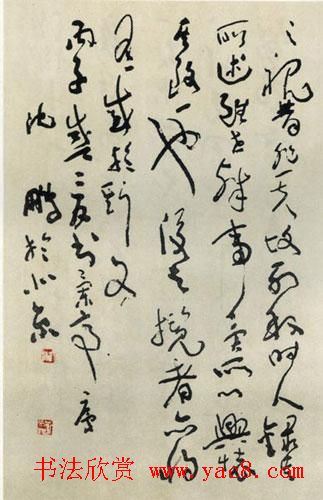 之視昔悲夫故列叙時人錄其
所述雖世殊事異所以興懷
其致一也後之攬者亦將
有感於斯文
丙子盛夏书蘭亭序
沈鵬於北京
书法欣赏 www.yac8.com